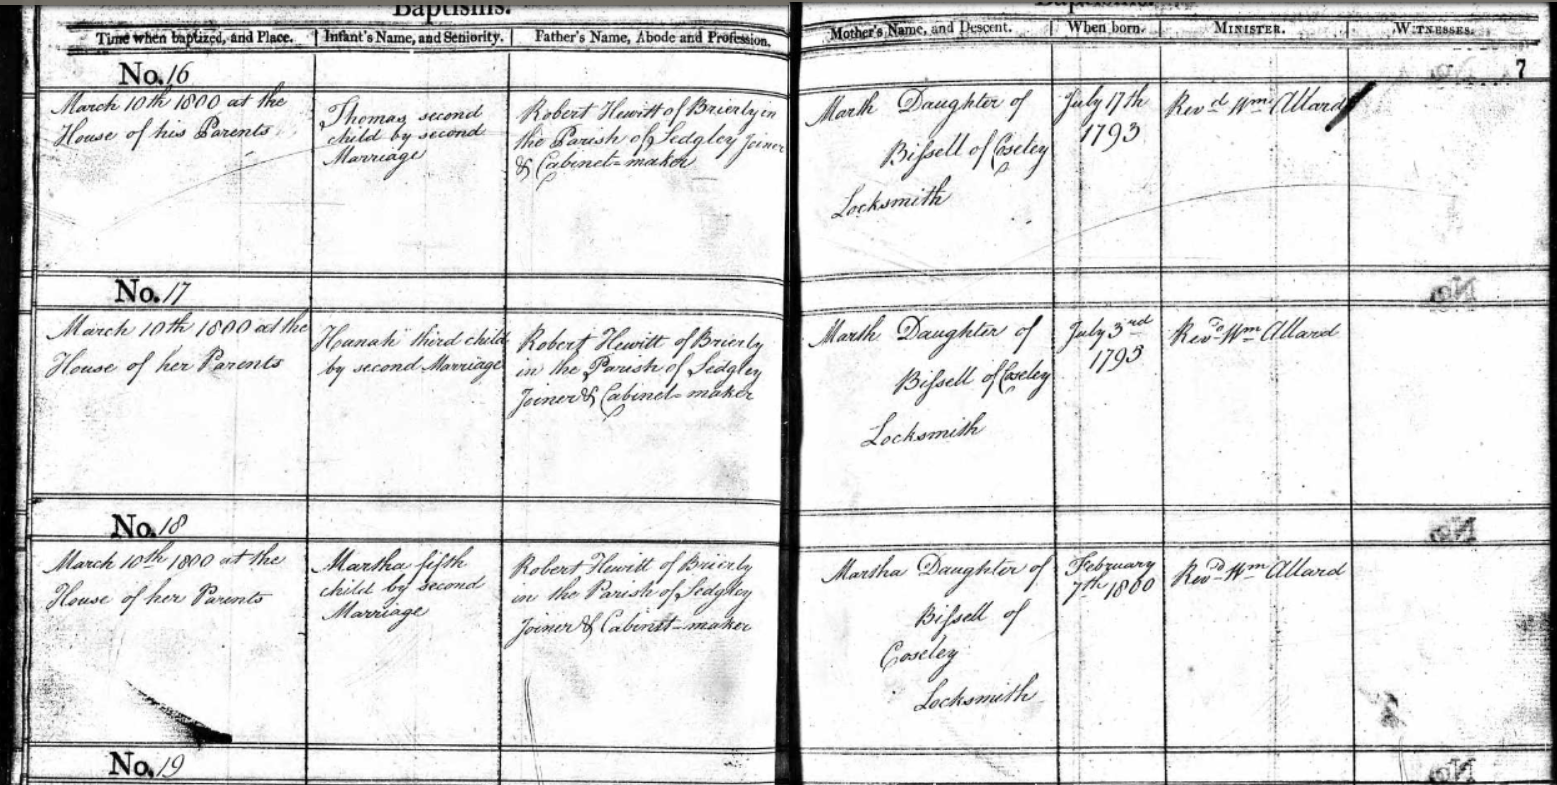 Baptisms.
Time when baptized, and Place. Infant's Name, and Seniority. Father's Name, Abode and Profession. Mother's Name, and Descent. When born. MINISTER. WITNESSES.
7
No. 16
March 10th 1800 at the
House of his Parents
Thomas second
child by second
Marriage
Robert Hewitt of Brierly in
the Parish of Sedgley Joiner
& Cabinet=maker
Marth Daughter of
Bifsell of Coseley
Locksmith
July 17th
1793
Revd Wm Allard
No. 17
March 10th 1800 at the
House of her Parents
Hanah third child
by second Marriage
Robert Hewitt of Brierly
in the Parish of Sedgley
Joiner & Cabinet=maker
Marth Daughter of
Bifsell of Coseley
Locksmith
July 3rd
1795
Revd Wm Allard
No. 18
March 10th 1800 at the
House of her Parents
Martha fifth
child by second
Marriage
Robert Hewitt of Brierly
in the Parish of Sedgley
Joiner & Cabinet=maker
Marsha Daughter of
Bifsell of
Coseley
Locksmith
February
7th 1800
Revd Wm Allard
No. 19